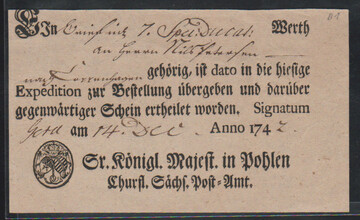 Ein Brief mit 7. Spec. Ducat: Werth
an Herrn Nils Petersen
nach Coppenhagen gehörig, ist dato in die hiesige
Expedition zur Bestellung übergeben und darüber
gegenwärtiger Schein ertheilet worden, Signatum
Gera am 14. Dec. Anno 1742
Sr. Königl. Majest. in Pohlen
Churfl. Sächs. Post-Amt.